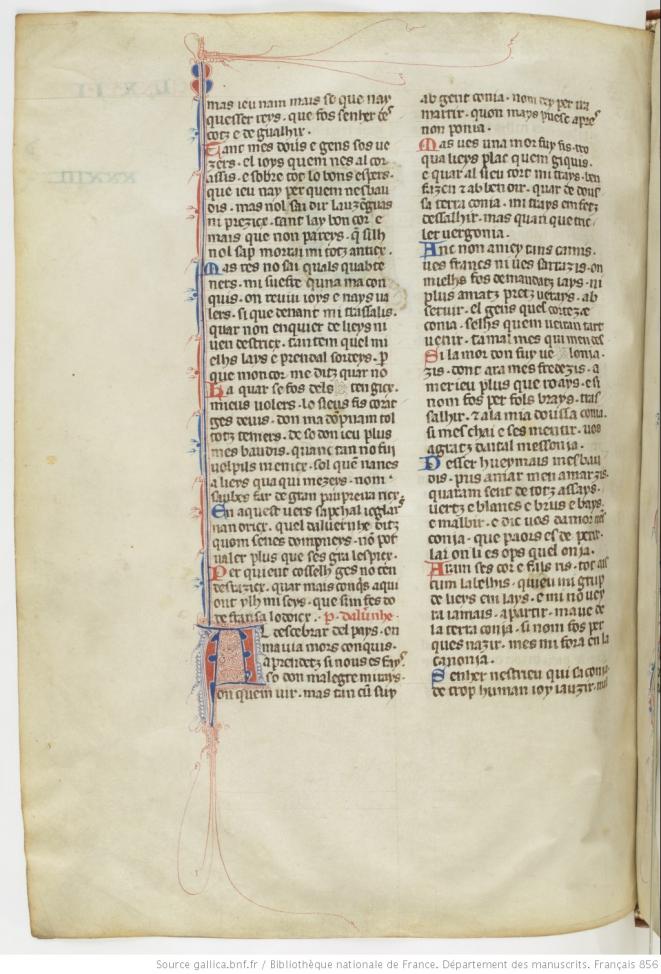 mas ieu nam mais so que nay
quesser reys. que fos senher
totz e de gualhir.
Tant mes dous e gens sos ue
zers. el ioys quem nes al cor
assis. e sobre tot lo bons espers.
que ieu nay per quem nesbau
dis. mas nol sai dir lauzeguas
ni prezicx. tant lay bon cor e
mais que non pareys. q̃ silh
nol sap mortai mi totz anticx.
Mas res no sai quals
ners. mi sueffr quna ma con
quis. on reuiu ioys e nays ua
lers. si que denant mi trassalis.
quar non enquier de lieys ni
uen destricx. tan tem quel mi
elhs lays e prendal sordeys. p̱
que mon cor me ditz quar no
La quar se fos dels tengicx.
mieus uolers. lo sieus fis corat
ges deuis. don ma tol
totz temers. de so don ieu plus
mes baudis. quanc tan no fui
uolpils ni enicx. sol quem nanes
a lieys qua qui mezeys. nom
saubes far de gran paupreira ricx.
En aquest uers sapchal ioglar
nan oricx. quel daluernhe ditz
quom senes dompneys. nō pot
ualer plus que ses gra lespicx.
Per quieu cosselh ges no ten
destarzicx. quar mais conq̄s aqui
ont ylh mi seys. que sim fes do
de fransa lodoicx. p. daluñhe.
Al descebrar del pays. on
mauia mors conquis.
aprendetz si nous es fays.
so don malegre mirays.
on quem uir. mas tan cū suy
ab gent conia. nom cey per ira
martir. quon mays puesc apres
non ponia.
Mas ues una mor fuy fis. tro
qua lieys plac quem giquis.
e quar al sieu tort mi trays. ben
fazen z ab ben dir. quar de dous
sa terra conia. mi trays em fetz
dessalhir. mas quan que tric
let uergonia.
Anc non amey tans camis.
ues francs ni ues sarrazis. on
mielhs fos demandatz iays. ni
plus amatz pretz uerays. ab
seruir. el gens quel cortez
conia. selhs quem uedan tart
uenir. tamal mes qui men des
Si la mor don fuy ue lonia.
zis. dont ara mes fredezis. a
mer ieu plus que roays. e si
nom fos per fols brays. tras
salhir. z a la mia doussa conia.
si mes chai e ses mentir. uos
agratz daital messonia.
Desser hueymais mesbau
dis. pus amar men amarzis.
quaram sent de totz assays.
uertz e blancs e brus e bays.
e malbir. e dic uos damor
conia. que paors es de
lar on li es ops quel onia.
Aram ses cor e fals ris. tot ais
cum la felhis. quieu mi gurp
de lieys em lays. e mi nō uey
ra iamais. a partir. ma ue de
la terra conja. si nom fos per
ques nazir. mes mi fora en la
canonia.
Senher nestrieu qui sa conia.
de trop human ioy iauzir.
Source gallica.bnf.fr / Bibliothèque nationale de France. Département des manuscrits. Français 856